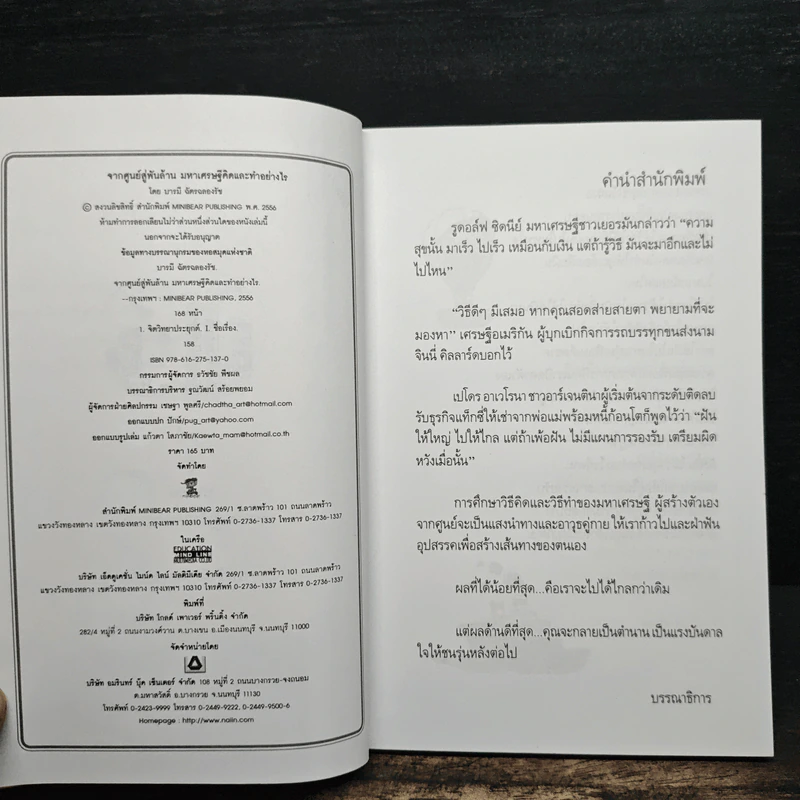 จากศูนย์สู่พันล้าน มหาเศรษฐีคิดและทำอย่างไร
โดย บารมี ฉัตรฉลองรัช
© สงวนลิขสิทธิ์ สำนักพิมพ์ MINIBEAR PUBLISHING พ.ศ. 2556
ห้ามทำการลอกเลียนไม่ว่าส่วนหนึ่งส่วนใดของหนังเล่มนี้
นอกจากจะได้รับอนุญาต
ข้อมูลทางบรรณานุกรมของหอสมุดแห่งชาติ
บารมี ฉัตรฉลองรัช.
จากศูนย์สู่พันล้าน มหาเศรษฐีคิดและทำอย่างไร.
--กรุงเทพฯ : MINIBEAR PUBLISHING, 2556
168 หน้า
1. จิตวิทยาประยุกต์. I. ชื่อเรื่อง.
158
ISBN 978-616-275-137-0
กรรมการผู้จัดการ ธวัชชัย พืชผล
บรรณาธิการบริหาร ฐณวัฒน์ สร้อยพยอม
ผู้จัดการฝ่ายศิลปกรรม เชษฐา พูลศรี/chadtha_art@hotmail.com
ออกแบบปก ปักษ์/pug_art@yahoo.com
ออกแบบรูปเล่ม แก้วตา โสภาชัย/Kaewta_mam@hotmail.co.th
ราคา 165 บาท
จัดทำโดย
สำนักพิมพ์ MINIBEAR PUBLISHING 269/1 ซ.ลาดพร้าว 101 ถนนลาดพร้าว
แขวงวังทองหลาง เขตวังทองหลาง กรุงเทพฯ 10310 โทรศัพท์ 0-2736-1337 โทรสาร 0-2736-1337
ในเครือ
EDUCATION
MIND LINE
MULTIMEDIA CO.,LTD.
บริษัท เอ็ดดูเคชั่น ไมน์ด ไลน์ มัลติมีเดีย จำกัด 269/1 ซ.ลาดพร้าว 101 ถนนลาดพร้าว
แขวงวังทองหลาง เขตวังทองหลาง กรุงเทพฯ 10310 โทรศัพท์ 0-2736-1337 โทรสาร 0-2736-1337
พิมพ์ที่
บริษัท โกลด์ เพาเวอร์ พริ้นติ้ง จำกัด
282/4 หมู่ที่ 2 ถนนงามวงศ์วาน ต.บางเขน อ.เมืองนนทบุรี จ.นนทบุรี 11000
จัดจำหน่ายโดย
บริษัท อมรินทร์ บุ๊ค เซ็นเตอร์ จำกัด 108 หมู่ที่ 2 ถนนบางกรวย-จงถนอม
ต.มหาสวัสดิ์ อ.บางกรวย จ.นนทบุรี 11130
โทรศัพท์ 0-2423-9999 โทรสาร 0-2449-9222, 0-2449-9500-6
Homepage : http://www.naiin.com
คำนำสำนักพิมพ์
รูดอล์ฟ ซิดนีย์ มหาเศรษฐีชาวเยอรมันกล่าวว่า “ความ
สุขนั้น มาเร็ว ไปเร็ว เหมือนกับเงิน แต่ถ้ารู้วิธี มันจะมาอีกและไม่
ไปไหน”
“วิธีดีๆ มีเสมอ หากคุณสอดส่ายสายตา พยายามที่จะ
มองหา” เศรษฐีอเมริกัน ผู้บุกเบิกกิจการรถบรรทุกขนส่งนาม
จินนี่ คิลลาร์ดบอกไว้
เปโดร อาเวโรนา ชาวอาร์เจนตินาผู้เริ่มต้นจากระดับติดลบ
รับธุรกิจแท็กซี่ให้เช่าจากพ่อแม่พร้อมหนี้ก้อนโตก็พูดไว้ว่า “ฝัน
ให้ใหญ่ ไปให้ไกล แต่ถ้าเพ้อฝัน ไม่มีแผนการรองรับ เตรียมผิด
หวังเมื่อนั้น”
การศึกษาวิธีคิดและวิธีทำของมหาเศรษฐี ผู้สร้างตัวเอง
จากศูนย์จะเป็นแสงนำทางและอาวุธคู่กาย ให้เราก้าวไปและฝ่าฟัน
อุปสรรคเพื่อสร้างเส้นทางของตนเอง
ผลที่ได้น้อยที่สุด...คือเราจะไปได้ไกลกว่าเดิม
แต่ผลด้านดีที่สุด...คุณจะกลายเป็นตำนาน เป็นแรงบันดาล
ใจให้ชนรุ่นหลังต่อไป
บรรณาธิการ